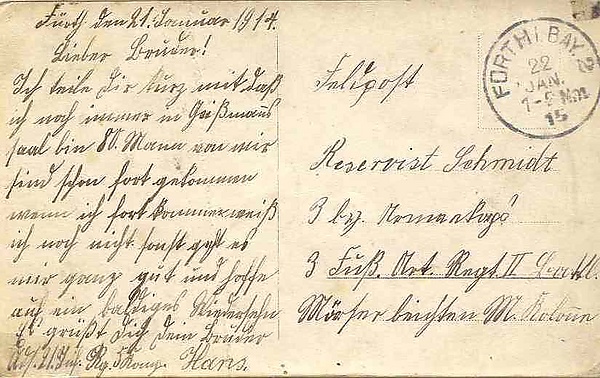 Fürth den 21. Januar 1914.
Lieber Bruder!
Ich teile Dir kurz mit daß
ich noch immer in Geißmanns
saal bin 80. Mann von mir
sind schon fort gekommen
wenn ich fort komme weiß
ich noch nicht sonst geht es
mir ganz gut und hoffe
auf ein baldiges Wiedersehn
Es grüßt Dich Dein Bruder
21. Inf. Rg. Hans.
FÜRTH 1. BAY. 2
22
JAN.
15
Feldpost
Reservist Schmidt
3 bay.
3 Fuß. Art. Regt. II Batl.
Mörser leichten M. Kolonne